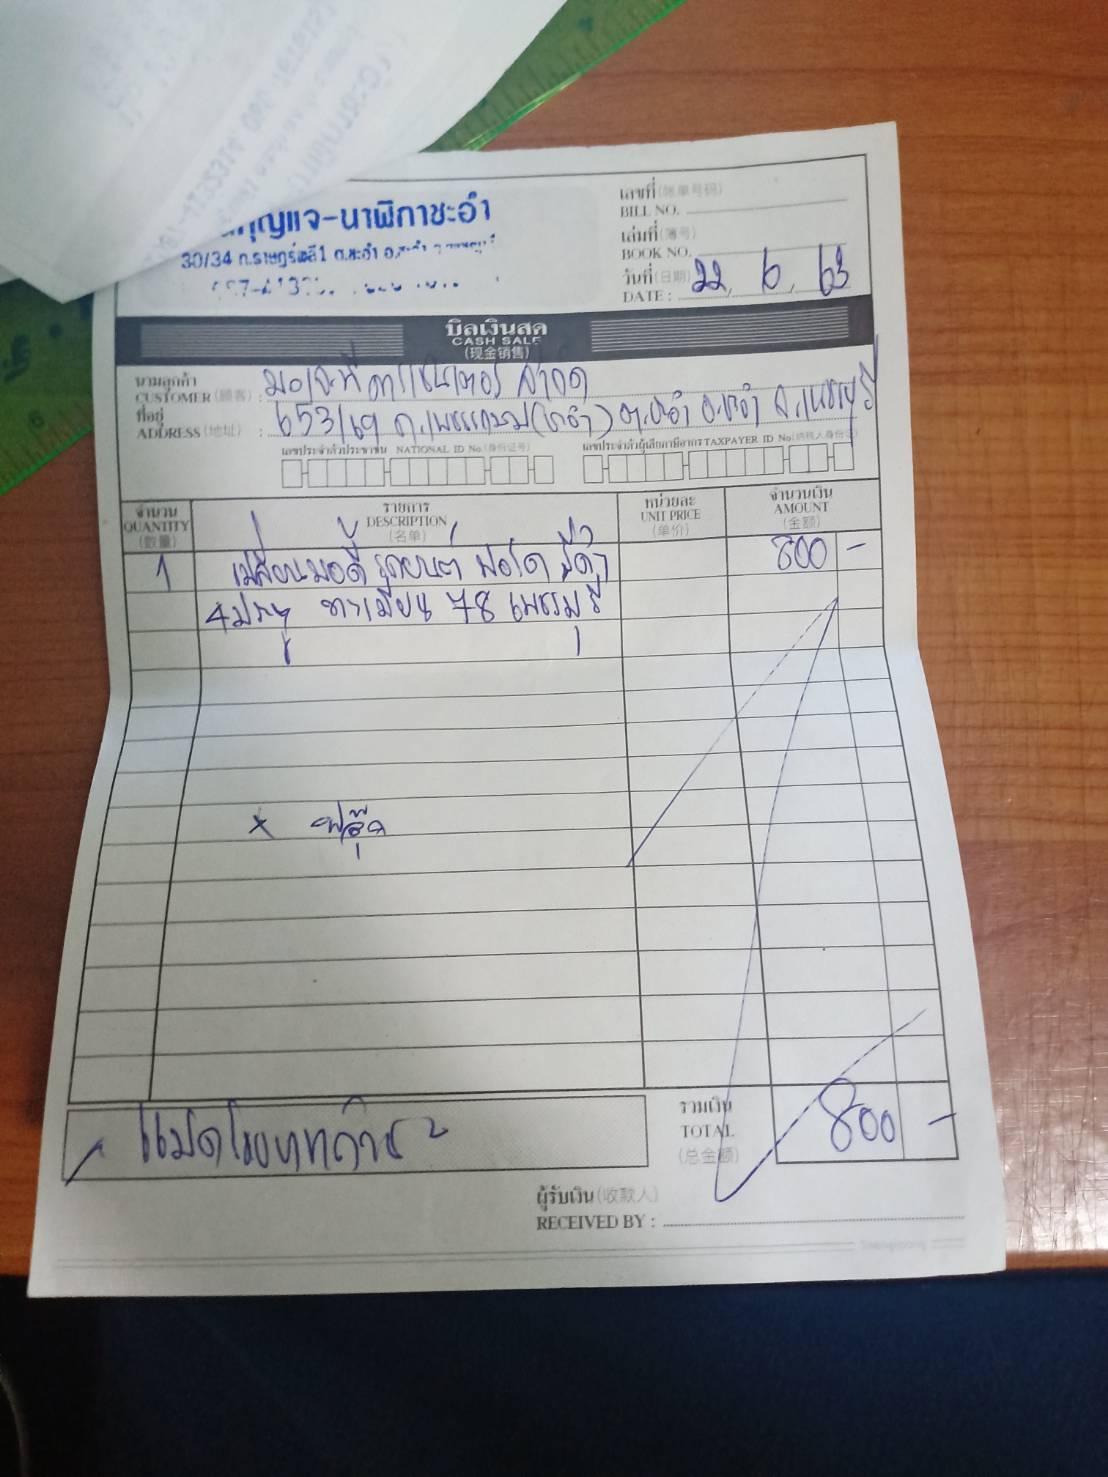 กุญแจ-นาฬิกาชะอำ
30/34 ถ.ราษฎร์พลี1 ต.ชะอำ
เลขที่ (账单号码)
BILL NO.
เล่มที่ (簿号)
BOOK NO.
วันที่ (日期)
DATE : 22, 6, 63
บิลเงินสด
CASH SALE
(现金销售)
นามลูกค้า
CUSTOMER (顾客) : จำกัด
ที่อยู่
ADDRESS (地址) : 653/69 ถ.เพชรเกษม ต.ชะอำ อ.ชะอำ จ.เพชรบุรี
เลขประจำตัวประชาชน NATIONAL ID No. (身份证号) เลขประจำตัวผู้เสียภาษีอากร TAXPAYER ID No. (纳税人身份证)
จำนวน รายการ หน่วยละ จำนวนเงิน
QUANTITY DESCRIPTION UNIT PRICE AMOUNT
(数量) (名单) (单价) (金额)
1 รถยนต์ ฟอร์ด สีดำ 800 -
4 ประตู ทะเบียน 78 เพชรบุรี
x
รวมเงิน
TOTAL 800 -
(总金额)
แปดร้อยบาทถ้วน
ผู้รับเงิน (收款人)
RECEIVED BY :